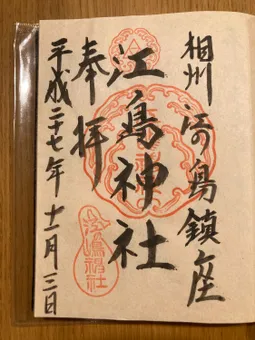 相州 江の島鎮座
江島神社
奉拝
平成二十七年 十一月 三日
江嶋神社